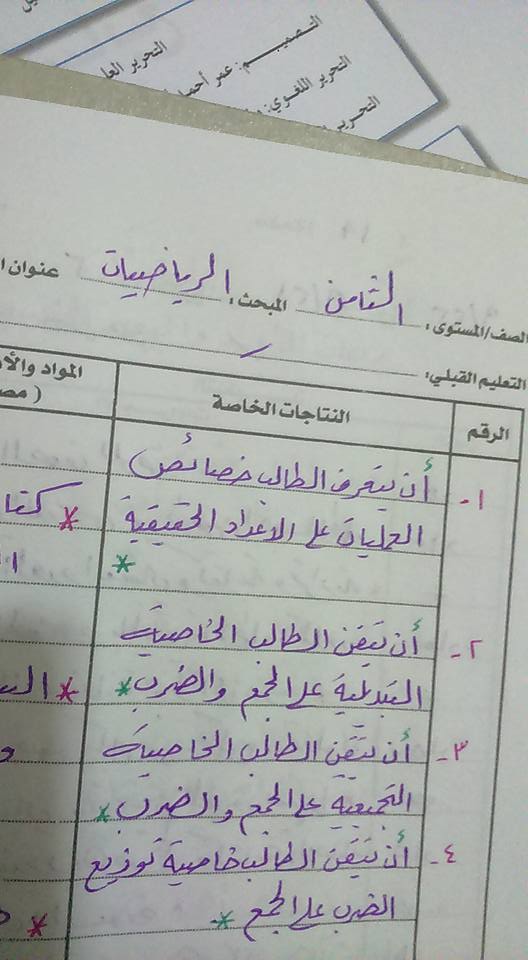 التصميم: عمر أحمد
التحرير العل
التحرير اللغوي:
التحرير
الصف/المستوى: الثامن المبحث: الرياضيات عنوان ا
التعليم القبلي:
الرقم النتاجات الخاصة المواد والأ
( مص
١- أن يتعرف الطالب خصائص
العمليات على الاعداد الحقيقية * كتا
*
٢- أن يتقن الطالب الخاصية
التبديلية على الجمع والضرب *
٣- أن يتقن الطالب الخاصية
التجميعية على الجمع والضرب *
٤- أن يتقن الطالب خاصية توزيع
الضرب على الجمع *